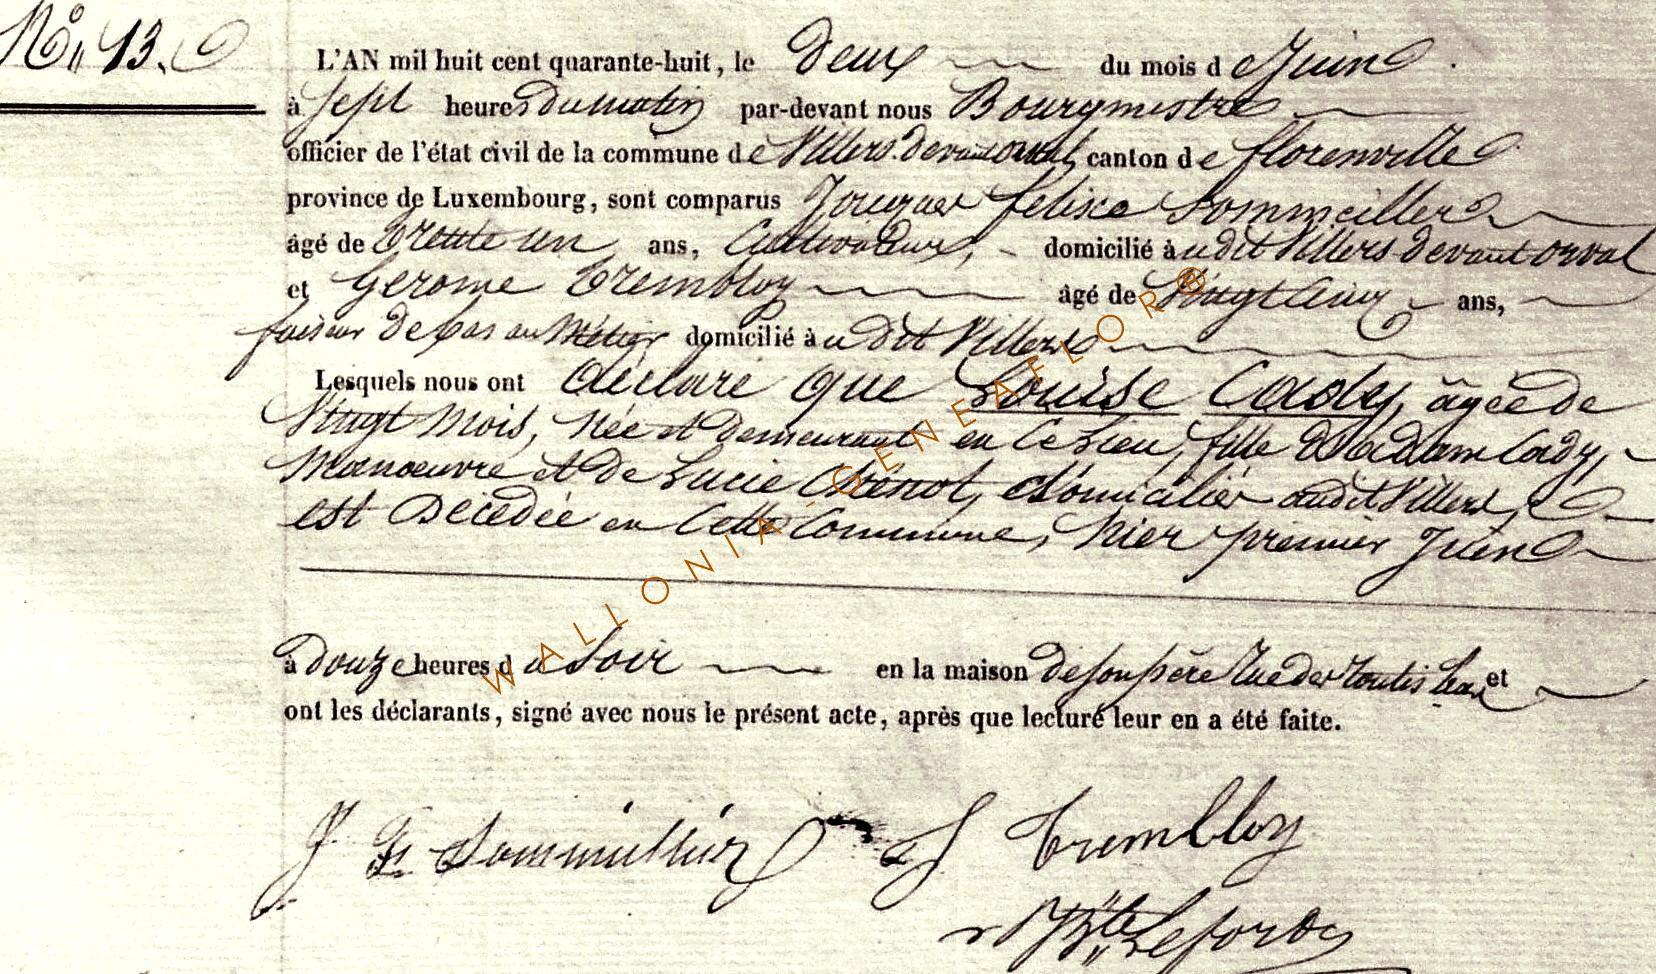 N° 13.
L'AN mil huit cent quarante-huit, le deux du mois de Juin.
à sept heures du matin par-devant nous Bourgmestre
officier de l'état civil de la commune de Villers devant orval, canton de florenville
province de Luxembourg, sont comparus felix Sommeiller
âgé de trente un ans, Cultivateur, domicilié audit Villers devant orval
et Gerome Trembloy âgé de Vingt Cinq ans,
faiseur de bas au Métier domicilié à audit Villers
Lesquels nous ont déclaré que Louise Cady, âgée de
Vingt Mois, née et demeurant en ce Lieu, fille d'adam Cady,
Manoeuvre et de Lucie Chénot, domicilié audit Villers,
est Décédée en Cette Commune, hier premier Juin
à douze heures du Soir en la maison de son père Rue des et
ont les déclarants, signé avec nous le présent acte, après que lecture leur en a été faite.
J F Sommeillier J Trembloy
WALLONIA-GENEAFLOR®